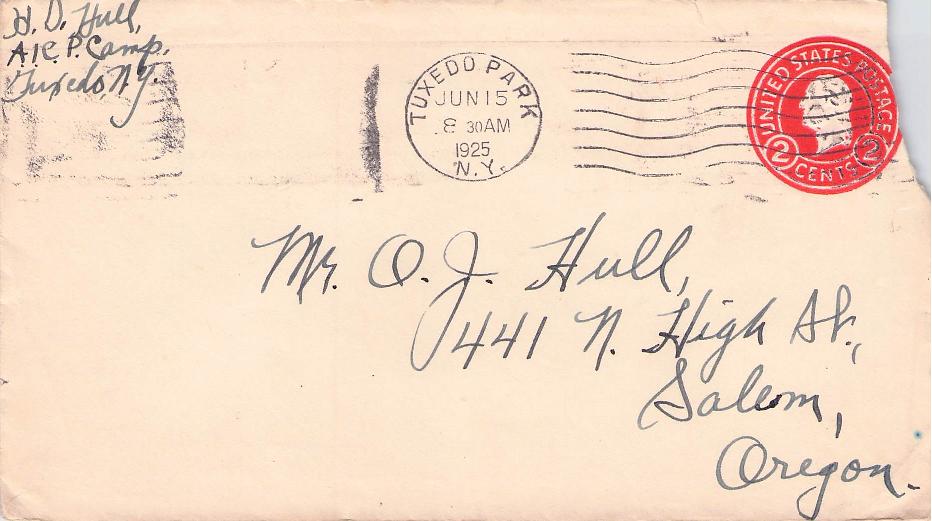 H. D. Hull,
A.I.C.P. Camp.
Tuxedo, N.Y.
TUXEDO PARK
JUN 15
8 30AM
1925
N.Y.
UNITED STATES POSTAGE
2 CENTS 2
Mr. O. J. Hull,
1441 N. High St.,
Salem,
Oregon.